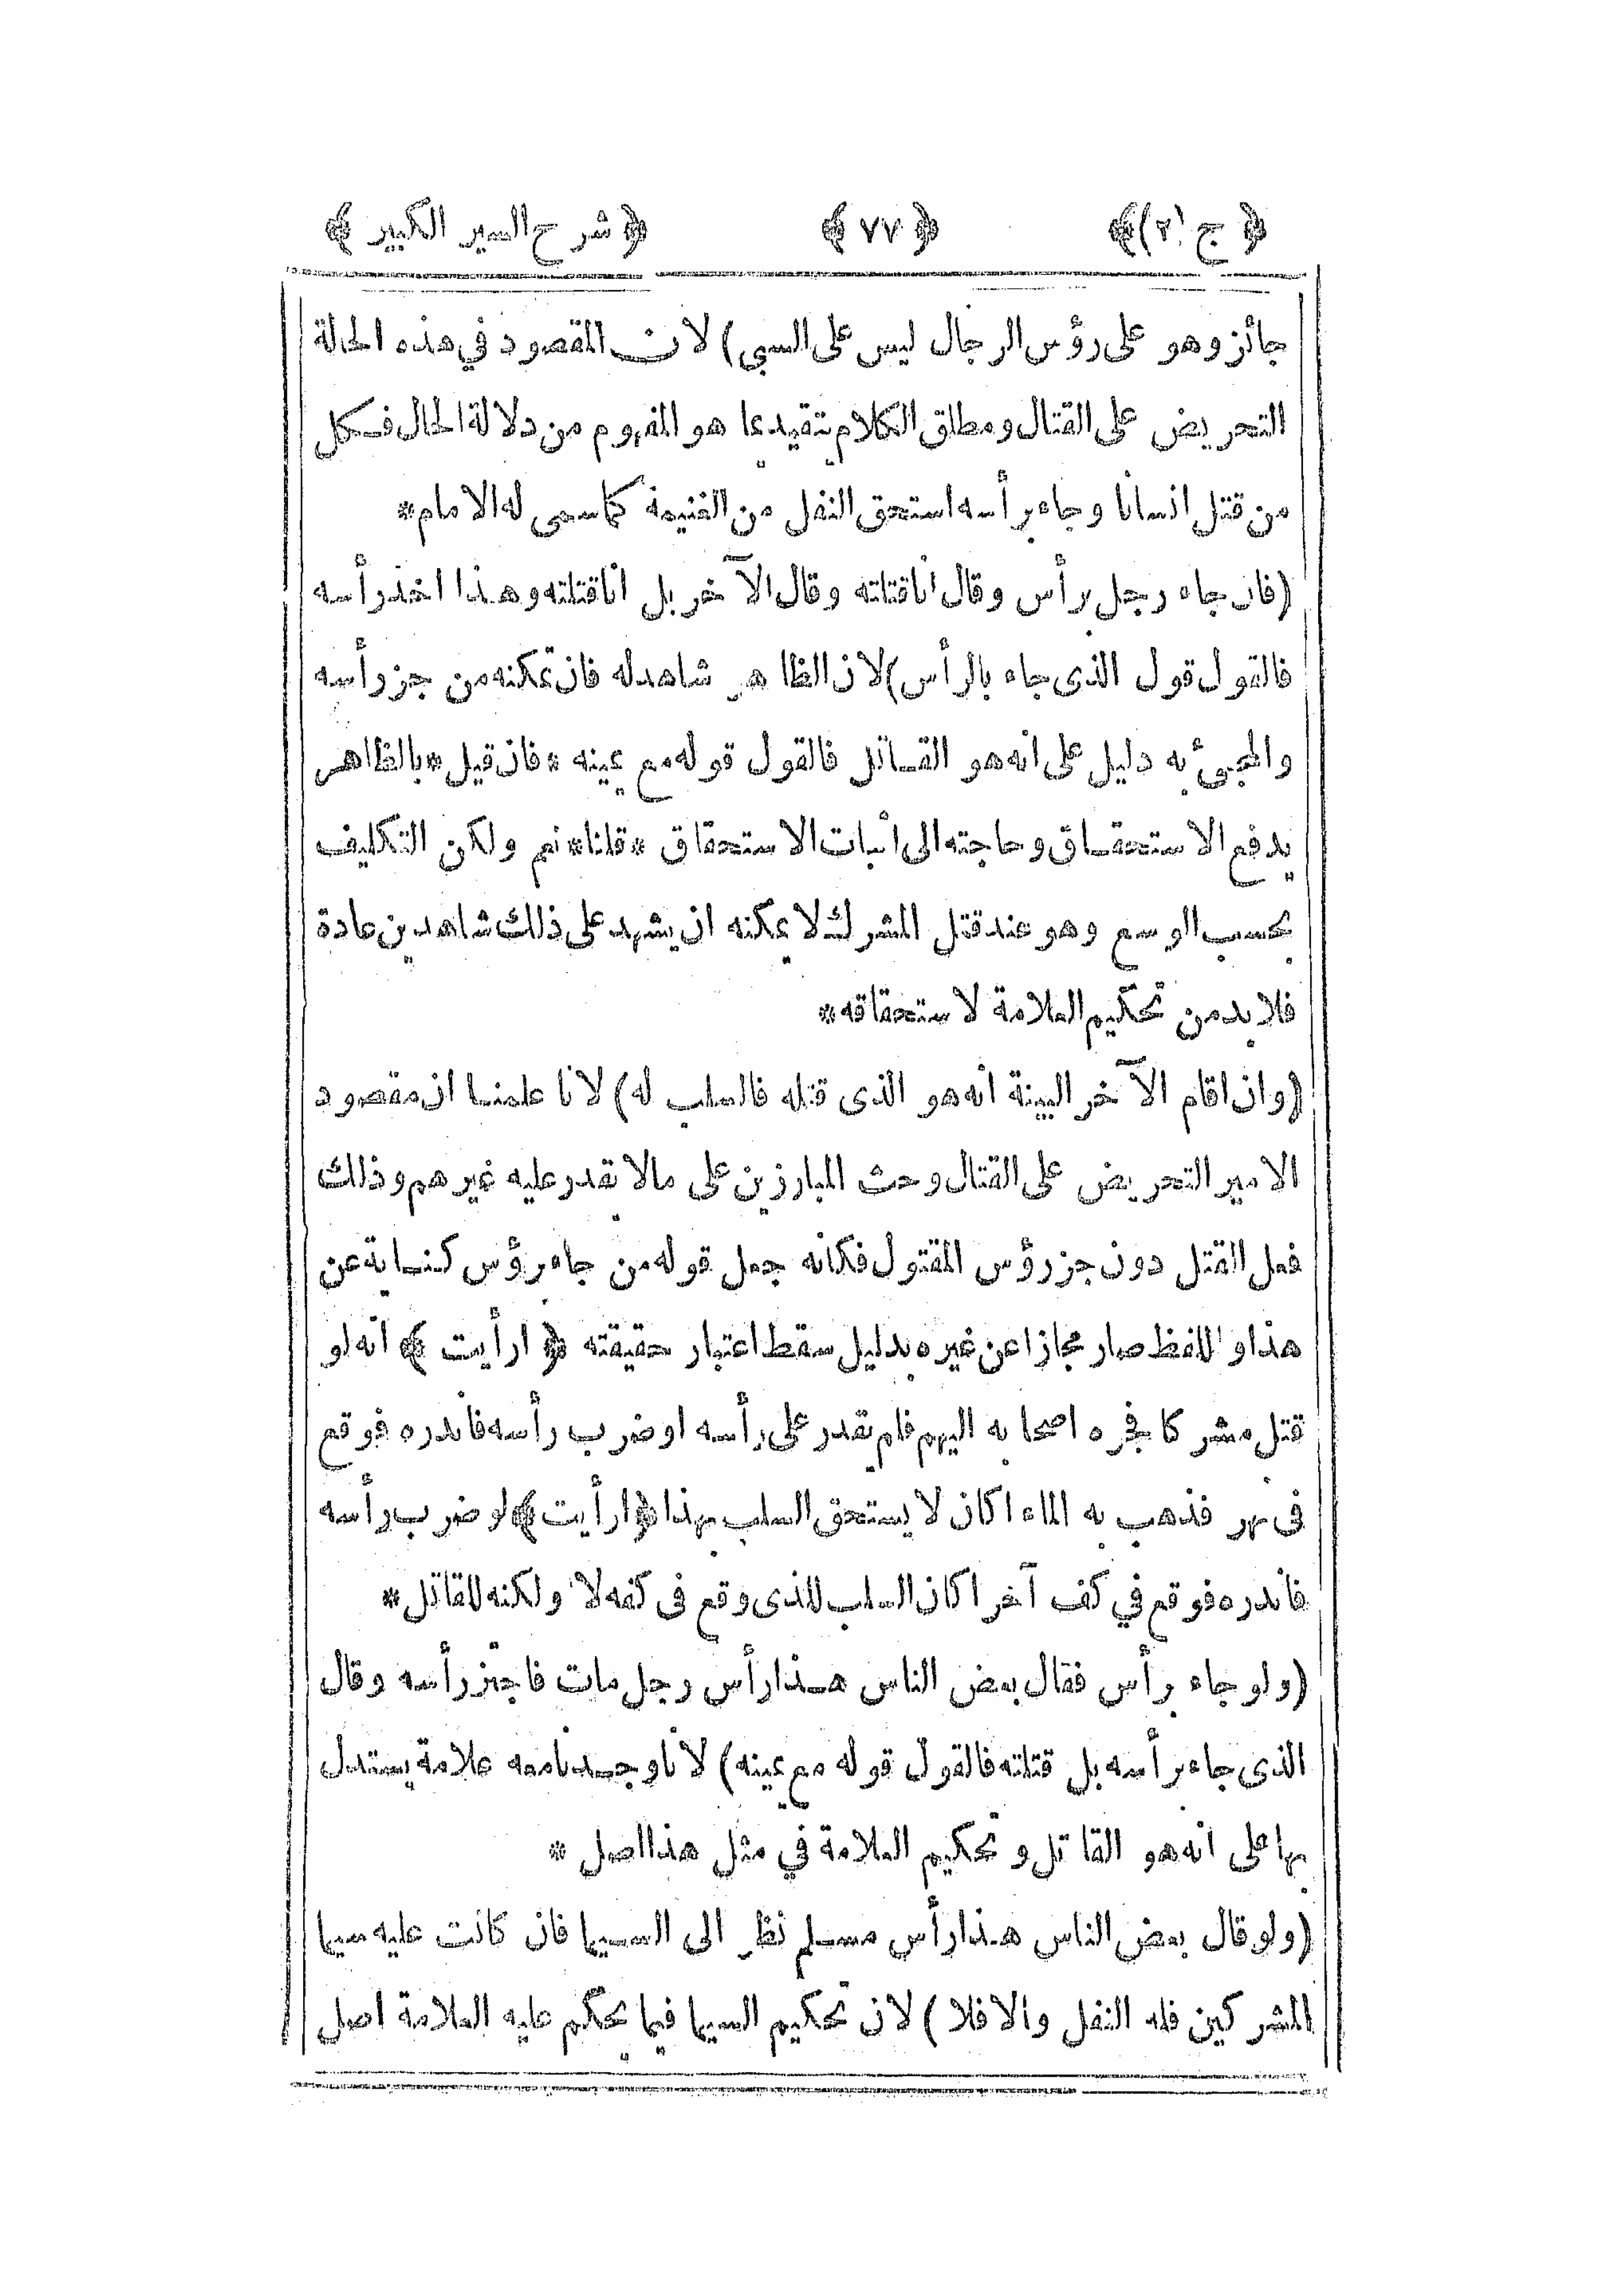 ﴿ ج (٢) ﴾ ﴿ ٧٧ ﴾ ﴿ شرح السير الكبير ﴾
جائز وهو على رؤس الرجال ليس على السبي) لان المقصود في هذه الحالة
التحريض على القتال ومطلق الكلام يتقيد بما هو المفهوم من دلالة الحال فكل
من قتل انسانا وجاء برأسه استحق النفل من الغنيمة كما سمى له الامام*
(فان جاء رجل برأس وقال انا قتلته وقال الآخر بل انا قتلته وهذا اخذ رأسه
فالقول قول الذى جاء بالرأس) لان الظاهر شاهد له فان تمكنه من جز رأسه
والمجئ به دليل على انه هو القاتل فالقول قوله مع يمينه *فان قيل* بالظاهر
يدفع الاستحقاق وحاجته الى اثبات الاستحقاق *قلنا* نعم ولكن التكليف
بحسب الوسع وهو عند قتل المشرك لا يمكنه ان يشهد على ذلك شاهدين عادة
فلا بد من تحكيم العلامة لاستحقاقه*
(وان اقام الآخر البينة انه هو الذى قتله فالسلب له) لانا علمنا ان مقصود
الامير التحريض على القتال وحث المبارزين على مالا يقدر عليه غيرهم وذلك
فعل القتل دون جز رؤس المقتول فكانه جعل قوله من جاء برؤس كناية عن
هذا واللفظ صار مجازا عن غيره بدليل سقط اعتبار حقيقته ﴿ ارأيت ﴾ انه لو
قتل مشركا فجره اصحابه اليهم فلم يقدر على رأسه او ضرب رأسه فاندره فوقع
فى نهر فذهب به الماء اكان لا يستحق السلب بهذا ﴿ارأيت﴾ لو ضرب رأسه
فاندره فوقع في كف آخر اكان السلب للذى وقع فى كفه لا ولكنه للقاتل*
(ولو جاء برأس فقال بعض الناس هذا رأس رجل مات فاجتز رأسه وقال
الذى جاء برأسه بل قتلته فالقول قوله مع يمينه) لانا وجدنا معه علامة يستدل
بها على انه هو القاتل وتحكيم العلامة في مثل هذا اصل *
(ولو قال بعض الناس هذا رأس مسلم نظر الى السيما فان كانت عليه سيما
المشركين فله النفل والا فلا) لان تحكيم السيما فيما يحكم عليه العلامة اصل